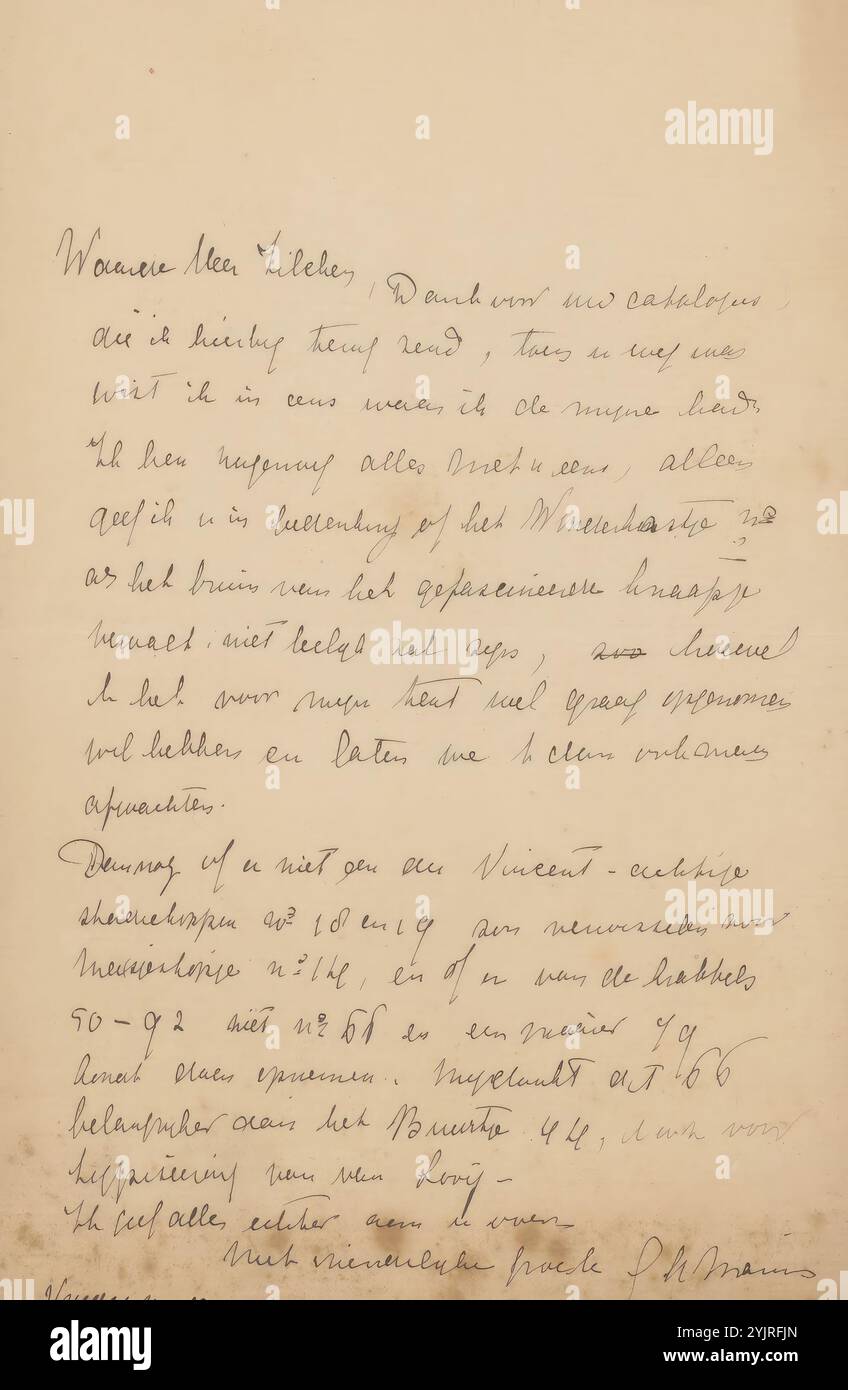 Waarde Heer Zilcken,
Dank voor uw catalogus,
die ik hierbij terug zend, toen u weg was
wist ik in eens waar ik de mijne had.
Ik ben nagenoeg alles met u eens, alleen
geef ik u in bedenking of het Wonderkastje no
als het bruin van het gefascineerde knaapje
niet leelijk zal zijn, zoo hoewel
ik het voor mijn tekst wel graag opgenomen
wil hebben en laten we 't dan ook maar
afwachten.
Dan nog of er niet een der Vincent-achtige
no 18 en 19 voor
meisjeskopje no 14, en of er van de krabbels
90-92 niet no 66 en een 79
opnemen. Mij dunkt dat 66
belangrijker dan het Buurtje 44, voor
typeering van van Looij -
Ik geef alles echter aan u over
Met vriendelijke groete G H Marius
alamy
Image ID: 2YJRFJN
www.alamy.com